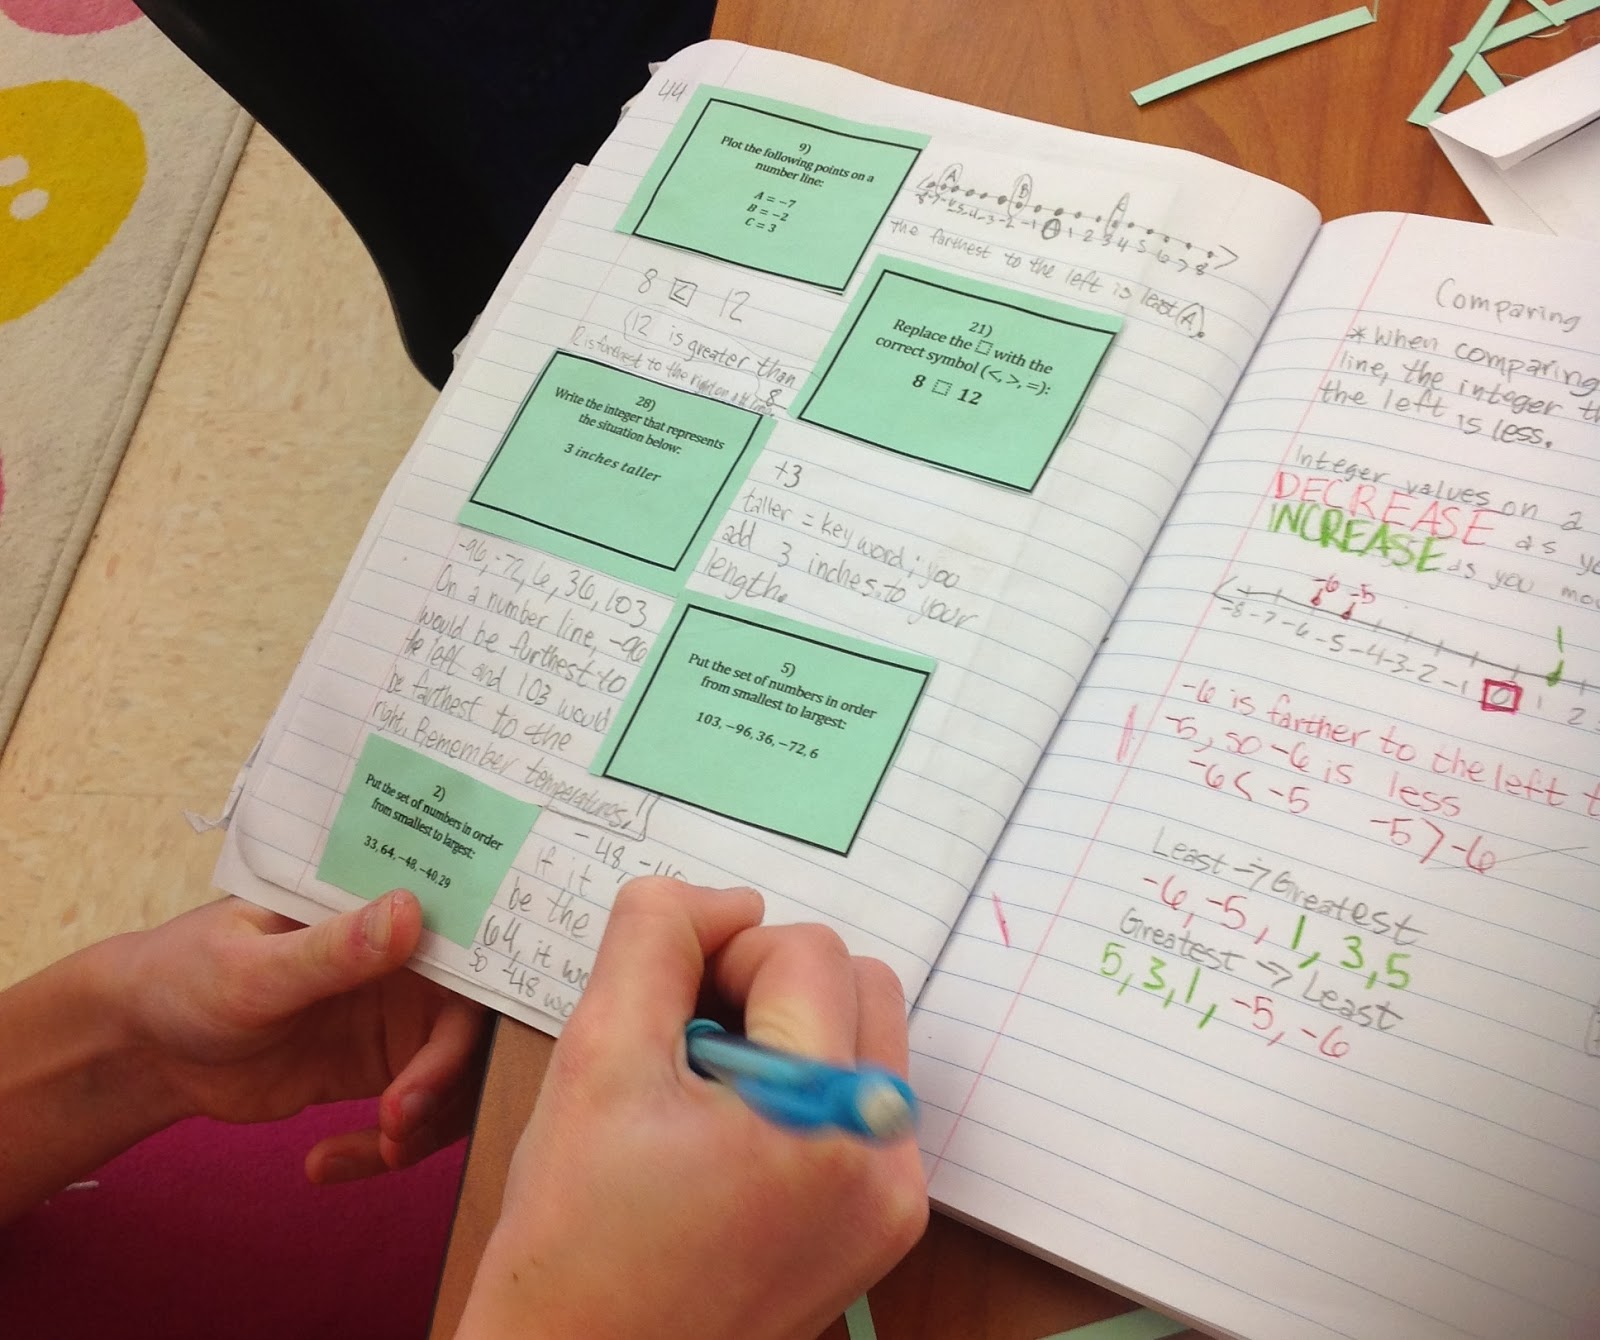 44
9)
Plot the following points on a
number line:
A = −7
B = −2
C = 3
A B C
-3 -2 -1 0 1 2 3 4 5 6 7 8
the farthest to the left is least (A).
8 < 12
12 is greater than
8
12 is farthest to the right on
21)
Replace the □ with the
correct symbol (<, >, =):
8 □ 12
28)
Write the integer that represents
the situation below:
3 inches taller
+3
taller = key word; you
add 3 inches to your
length.
-96, -72, 6, 36, 103
On a number line, -96
would be furthest to
the left and 103 would
be farthest to the
right. Remember temperatures!
5)
Put the set of numbers in order
from smallest to largest:
103, −96, 36, −72, 6
2)
Put the set of numbers in order
from smallest to largest:
33, 64, −48, −40, 29
-48,
If it
be the
64, it wo
so -48 wo
Comparing
* When comparing
line, the integer
the left is less.
Integer values on a
DECREASE as
INCREASE as you
-6 -5
-8 -7 -6 -5 -4 -3 -2 -1 0 1 2
-6 is farther to the left
-5, so -6 is less
-6 < -5 -5 > -6
Least → Greatest
-6, -5, 1, 3, 5
Greatest → Least
5, 3, 1, -5, -6